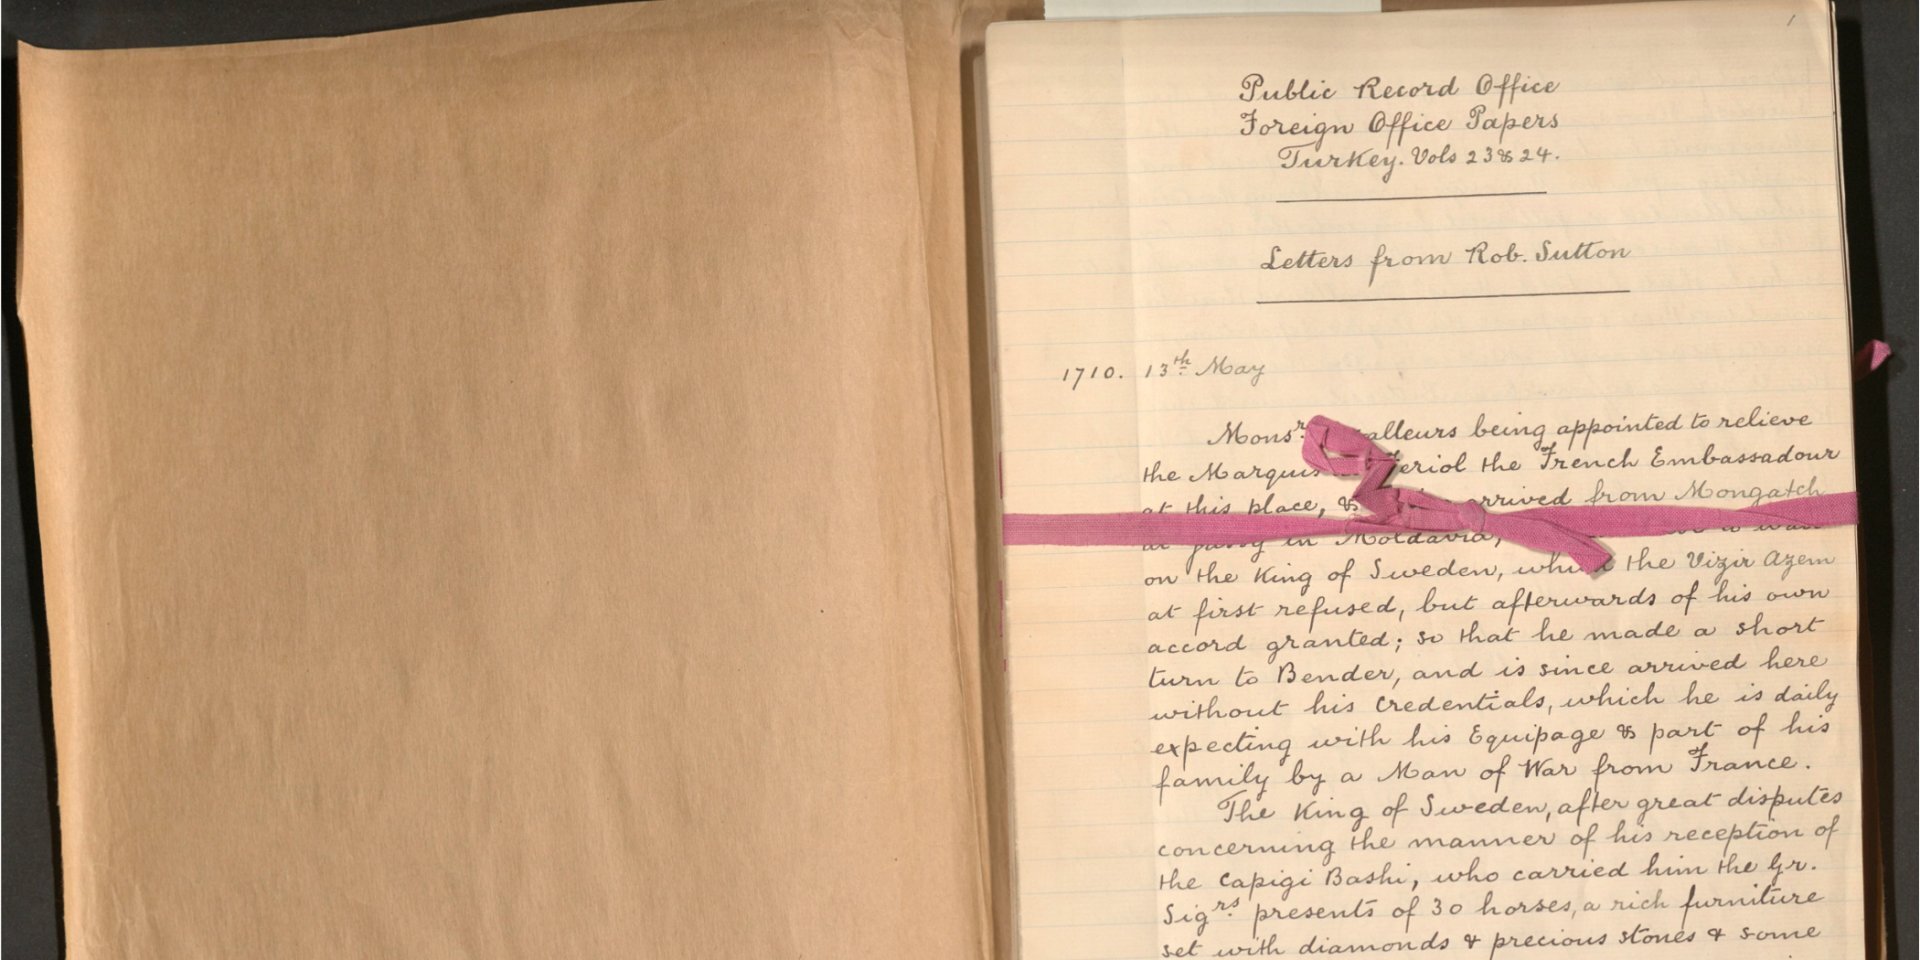 1
Public Record Office
Foreign Office Papers
Turkey. Vols 23 & 24.
Letters from Rob. Sutton
1710. 13th May
Monsr. alleurs being appointed to relieve
the Marquis eriol the French Embassadour
at this place, & arrived from Mongatch
at Jassy in Moldavia, to wait
on the King of Sweden, which the Vizir Azem
at first refused, but afterwards of his own
accord granted; so that he made a short
turn to Bender, and is since arrived here
without his Credentials, which he is daily
expecting with his Equipage & part of his
family by a Man of War from France.
The King of Sweden, after great disputes
concerning the manner of his reception of
the Capigi Bashi, who carried him the Gr.
Sigrs. presents of 30 horses, a rich furniture
set with diamonds & precious stones & some